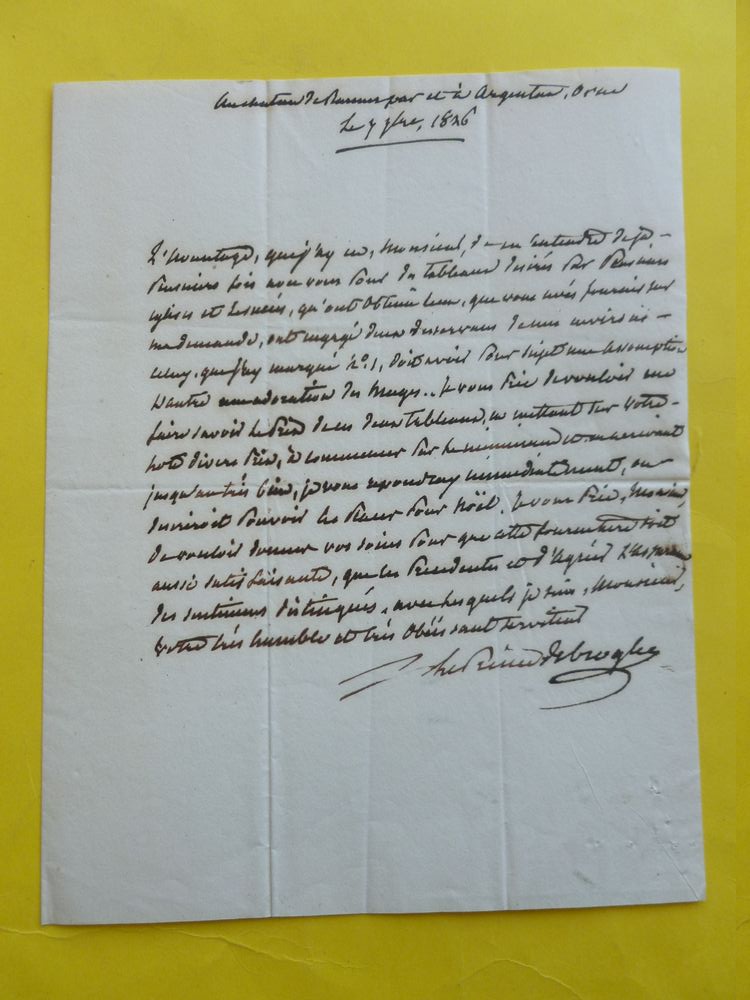 Au chateau de Rannes par et à Argentan, Orne
Le 7 9bre, 1826
L'avantage, que j'ay eu, Monsieur, de m'entendre déjà
Plusieurs fois avec vous Pour des tableaux désirés Par Plusieurs
églises et qu'ont obtenu ceux, que vous avés fournis sur
ma demande, ont engagé deux desservans de mes environs
celuy, que j'ay marqué N°. 1, doit avoir Pour sujet une assomption
L'autre une adoration des Mages.. Je vous Prie de vouloir me
faire savoir le Prix de ces deux tableaux, en mettant sur votre
note divers Prix, à commencer Par le minimum et en arrivant
jusqu'au très bien, je vous répondray immédiatement, on
désireroit Pouvoir les Placer Pour Noël. Je vous Prie, Monsieur,
de vouloir donner vos soins Pour que cette fourniture soit
aussi satisfaisante, que les Précédentes et d'agréer L'assurance
des sentimens distingués, avec lesquels je suis, Monsieur,
votre très humble et très obéissant serviteur
Le Prince de broglie